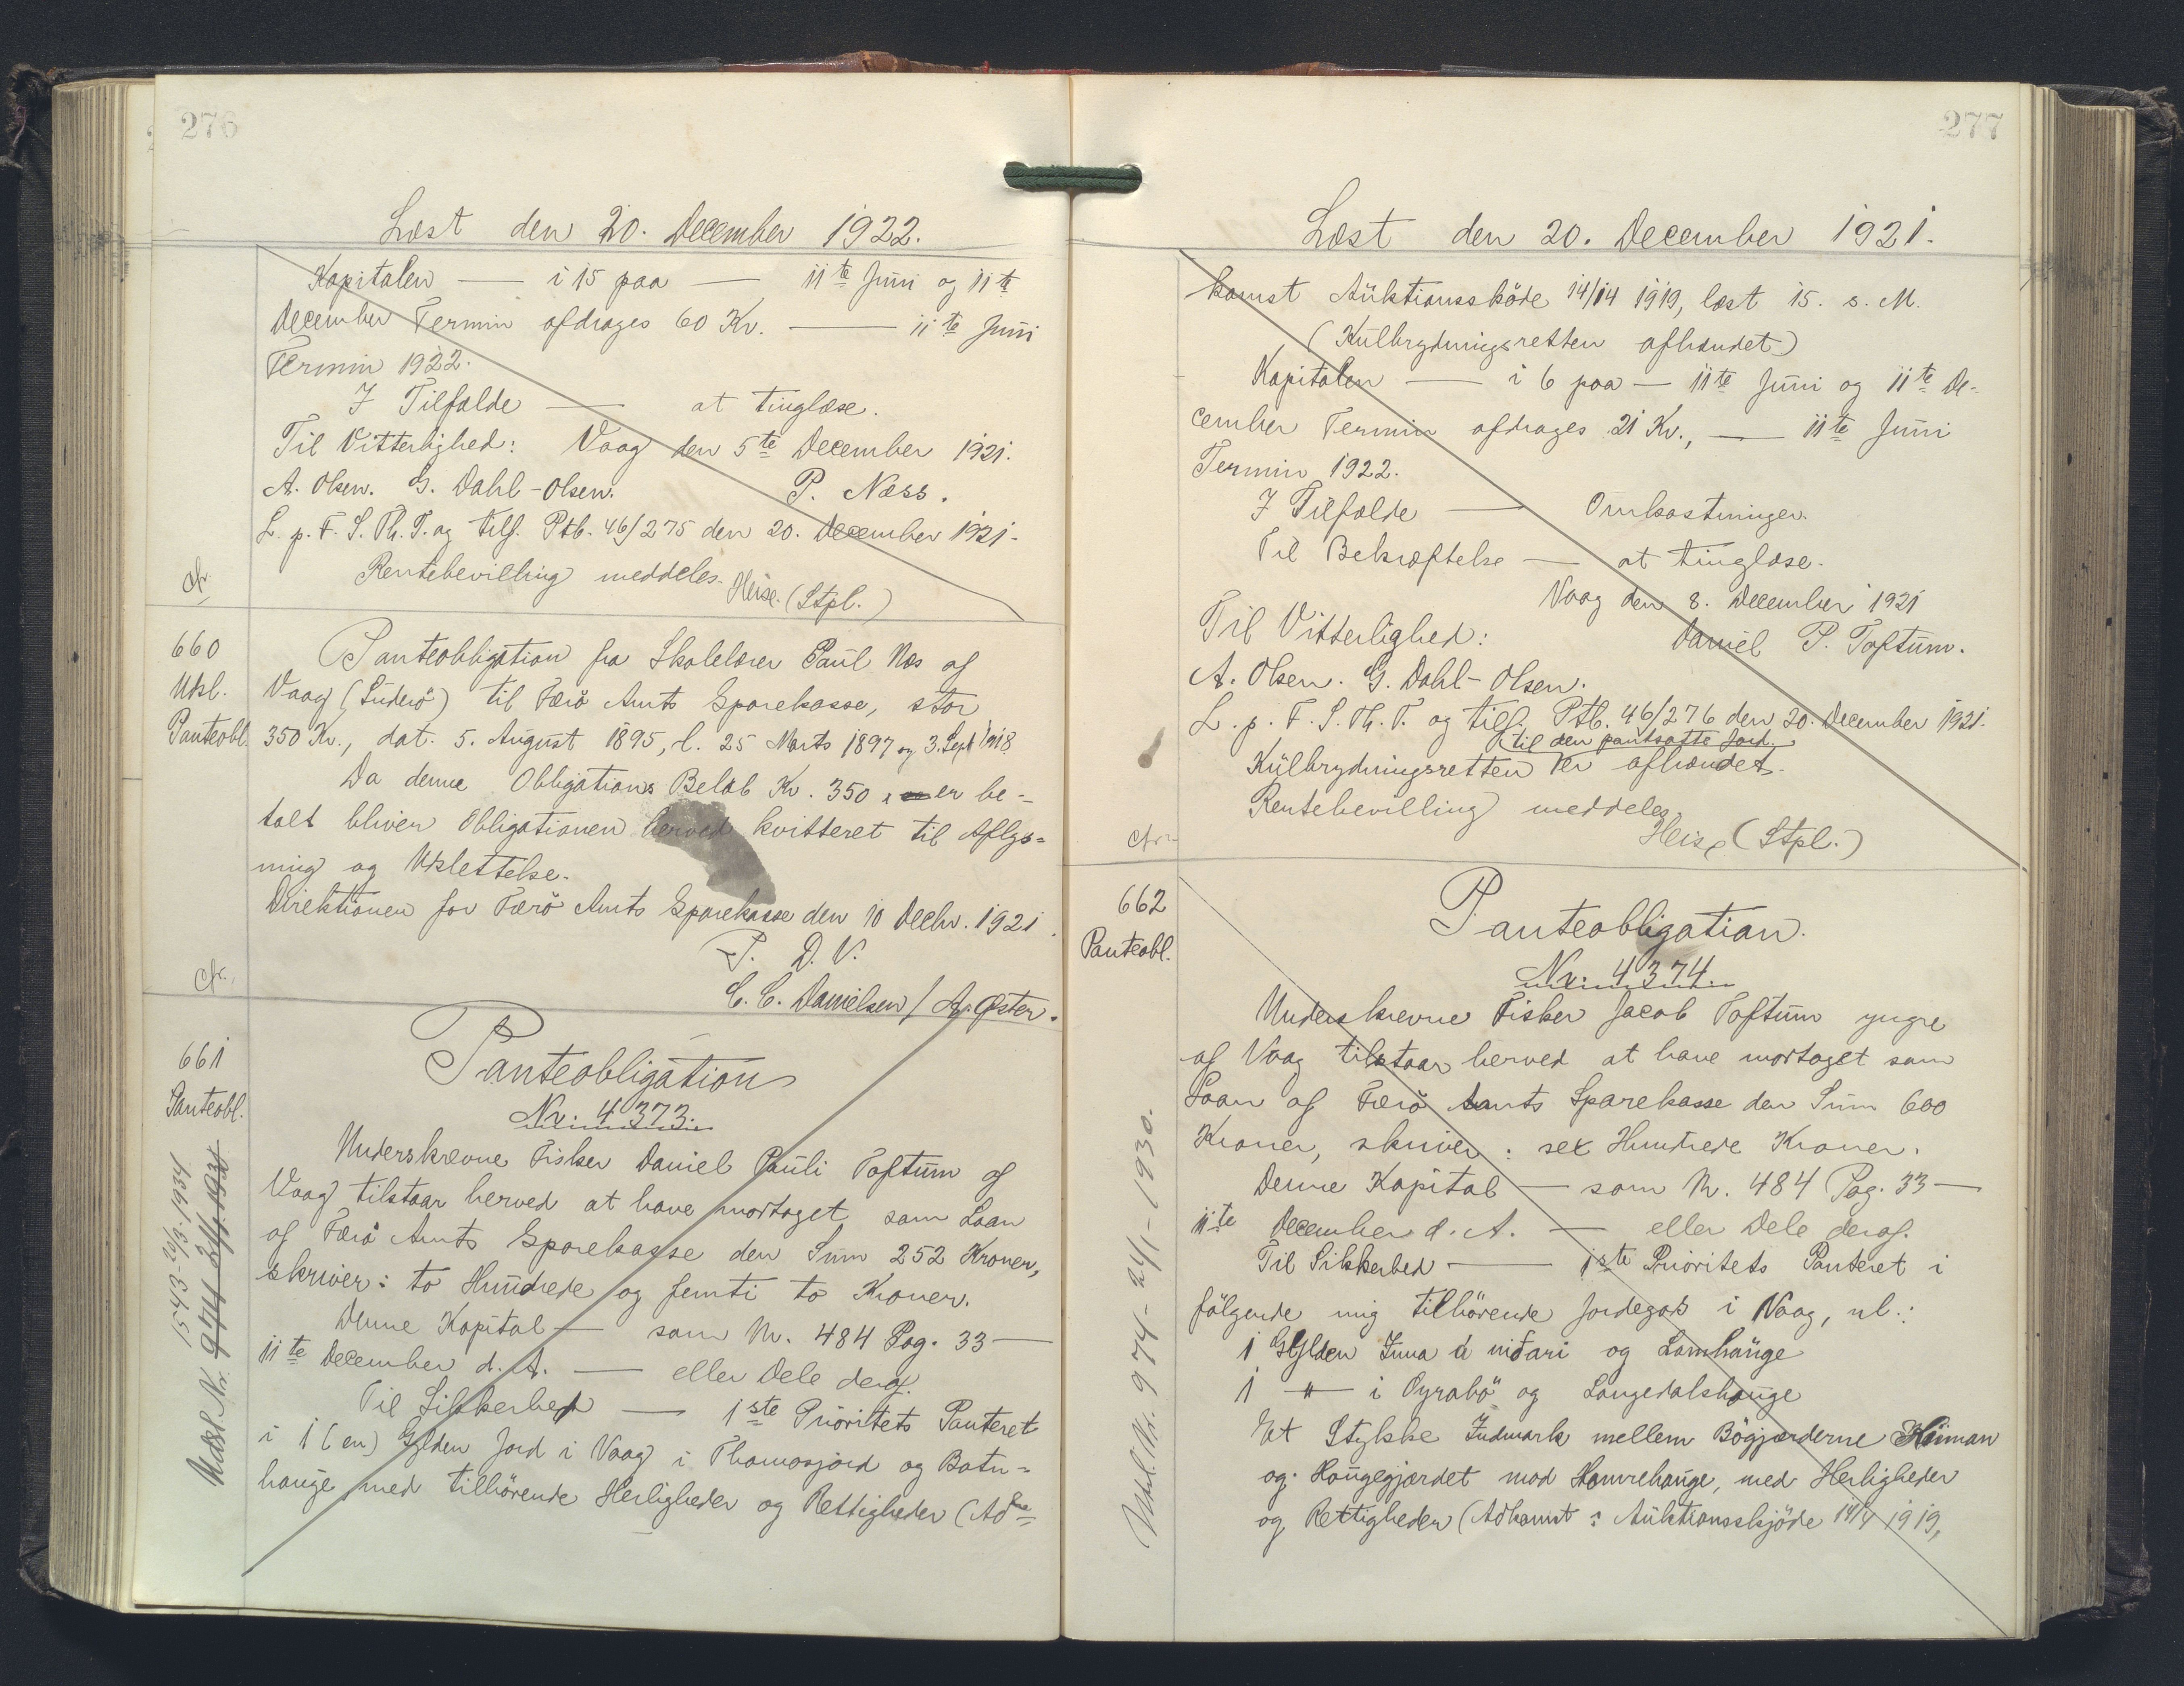 276
Læst den 20. December 1922.
Kapitalen — i 15 paa — 11te Juni og 11te
December Termin afdrages 60 Kr. — 11te Juni
Termin 1922.
I Tilfælde — at tinglæse.
Til Vitterlighed: Vaag den 5te December 1921.
A. Olsen. G. Dahl-Olsen. P. Næss.
L. p. F. S. Th. T. og tilf. Ptb. 46/275 den 20. December 1921.
Rentebevilling meddeles. Heise. (Stpl.)
cfr.
660
Udsl.
Panteobl.
Panteobligation fra Skolelærer Paul Næs af
Vaag (Suderö) til Færö Amts Sparekasse, stor
350 Kr., dat. 5. August 1895, l. 25 Marts 1897 og 3. Sept 1918
Da denne Obligations Beløb Kr. 350, er be-
talt bliver Obligationen herved kvitteret til Aflys=
ning og Udslettelse.
Direktionen for Færö Amts Sparekasse den 10 Decbr. 1921.
P. D. V.
C. C. Danielsen / A. Øster.
cfr.
661
Panteobl.
Udsl. Nr. 974-24/1-1931
1543-20/3-1934
Panteobligation
Nr. 4373.
Underskrevne Fisker Daniel Pauli Toftum af
Vaag tilstaar herved at have modtaget som Laan
af Færö Amts Sparekasse den Sum 252 Kroner,
skriver: to Hundrede og femti to Kroner.
Denne Kapital — som Nr. 484 Pag. 33 —
11te December d. A. — eller Dele deraf.
Til Sikkerhed — 1ste Prioritets Panteret
i 1 (en) Gylden Jord i Vaag i Thomasjord og Botn=
hauge med tilhörende Herligheder og Rettigheder (Ad=
277
Læst den 20. December 1921.
komst Auktionsskøde 14/14 1919, læst 15. s. M.
(Kulbrydningsretten afhændet)
Kapitalen — i 6 paa — 11te Juni og 11te De-
cember Termin afdrages 21 Kr., — 11te Juni
Termin 1922.
I Tilfælde — Omkostninger.
Til Bekræftelse — at tinglæse.
Vaag den 8. December 1921
Til Vitterlighed: Daniel P. Toftum.
A. Olsen. G. Dahl-Olsen.
L. p. F. S. Th. T. og tilf. Ptb. 46/276 den 20. December 1921.
til den pantsatte Jord
Kulbrydningsretten er afhændet.
Rentebevilling meddeles
Heise (Stpl.)
cfr.
662
Panteobl.
Udsl. Nr. 974-24/1-1930.
Panteobligation.
Nr. 4374.
Underskrevne Fisker Jacob Toftum yngre
af Vaag tilstaar herved at have modtaget som
Laan af Færö Amts Sparekasse den Sum 600
Kroner, skriver: sex Hundrede Kroner.
Denne Kapital — som Nr. 484 Pag. 33 —
11te December d. A. — eller Dele deraf.
Til Sikkerhed — 1ste Prioritets Panteret i
følgende mig tilhörende Jordegods i Vaag, nl.:
1 Gylden Inna á niðari og Lamhauge
1 — " — i Oyrabö og Langedalshauge
Et Stykke Indmark mellem Bögjærderne
og Haugegjærdet mod Hamrehauge, med Herligheder
og Rettigheder (Adkomst: Auktionsskjöde 14/4 1919,